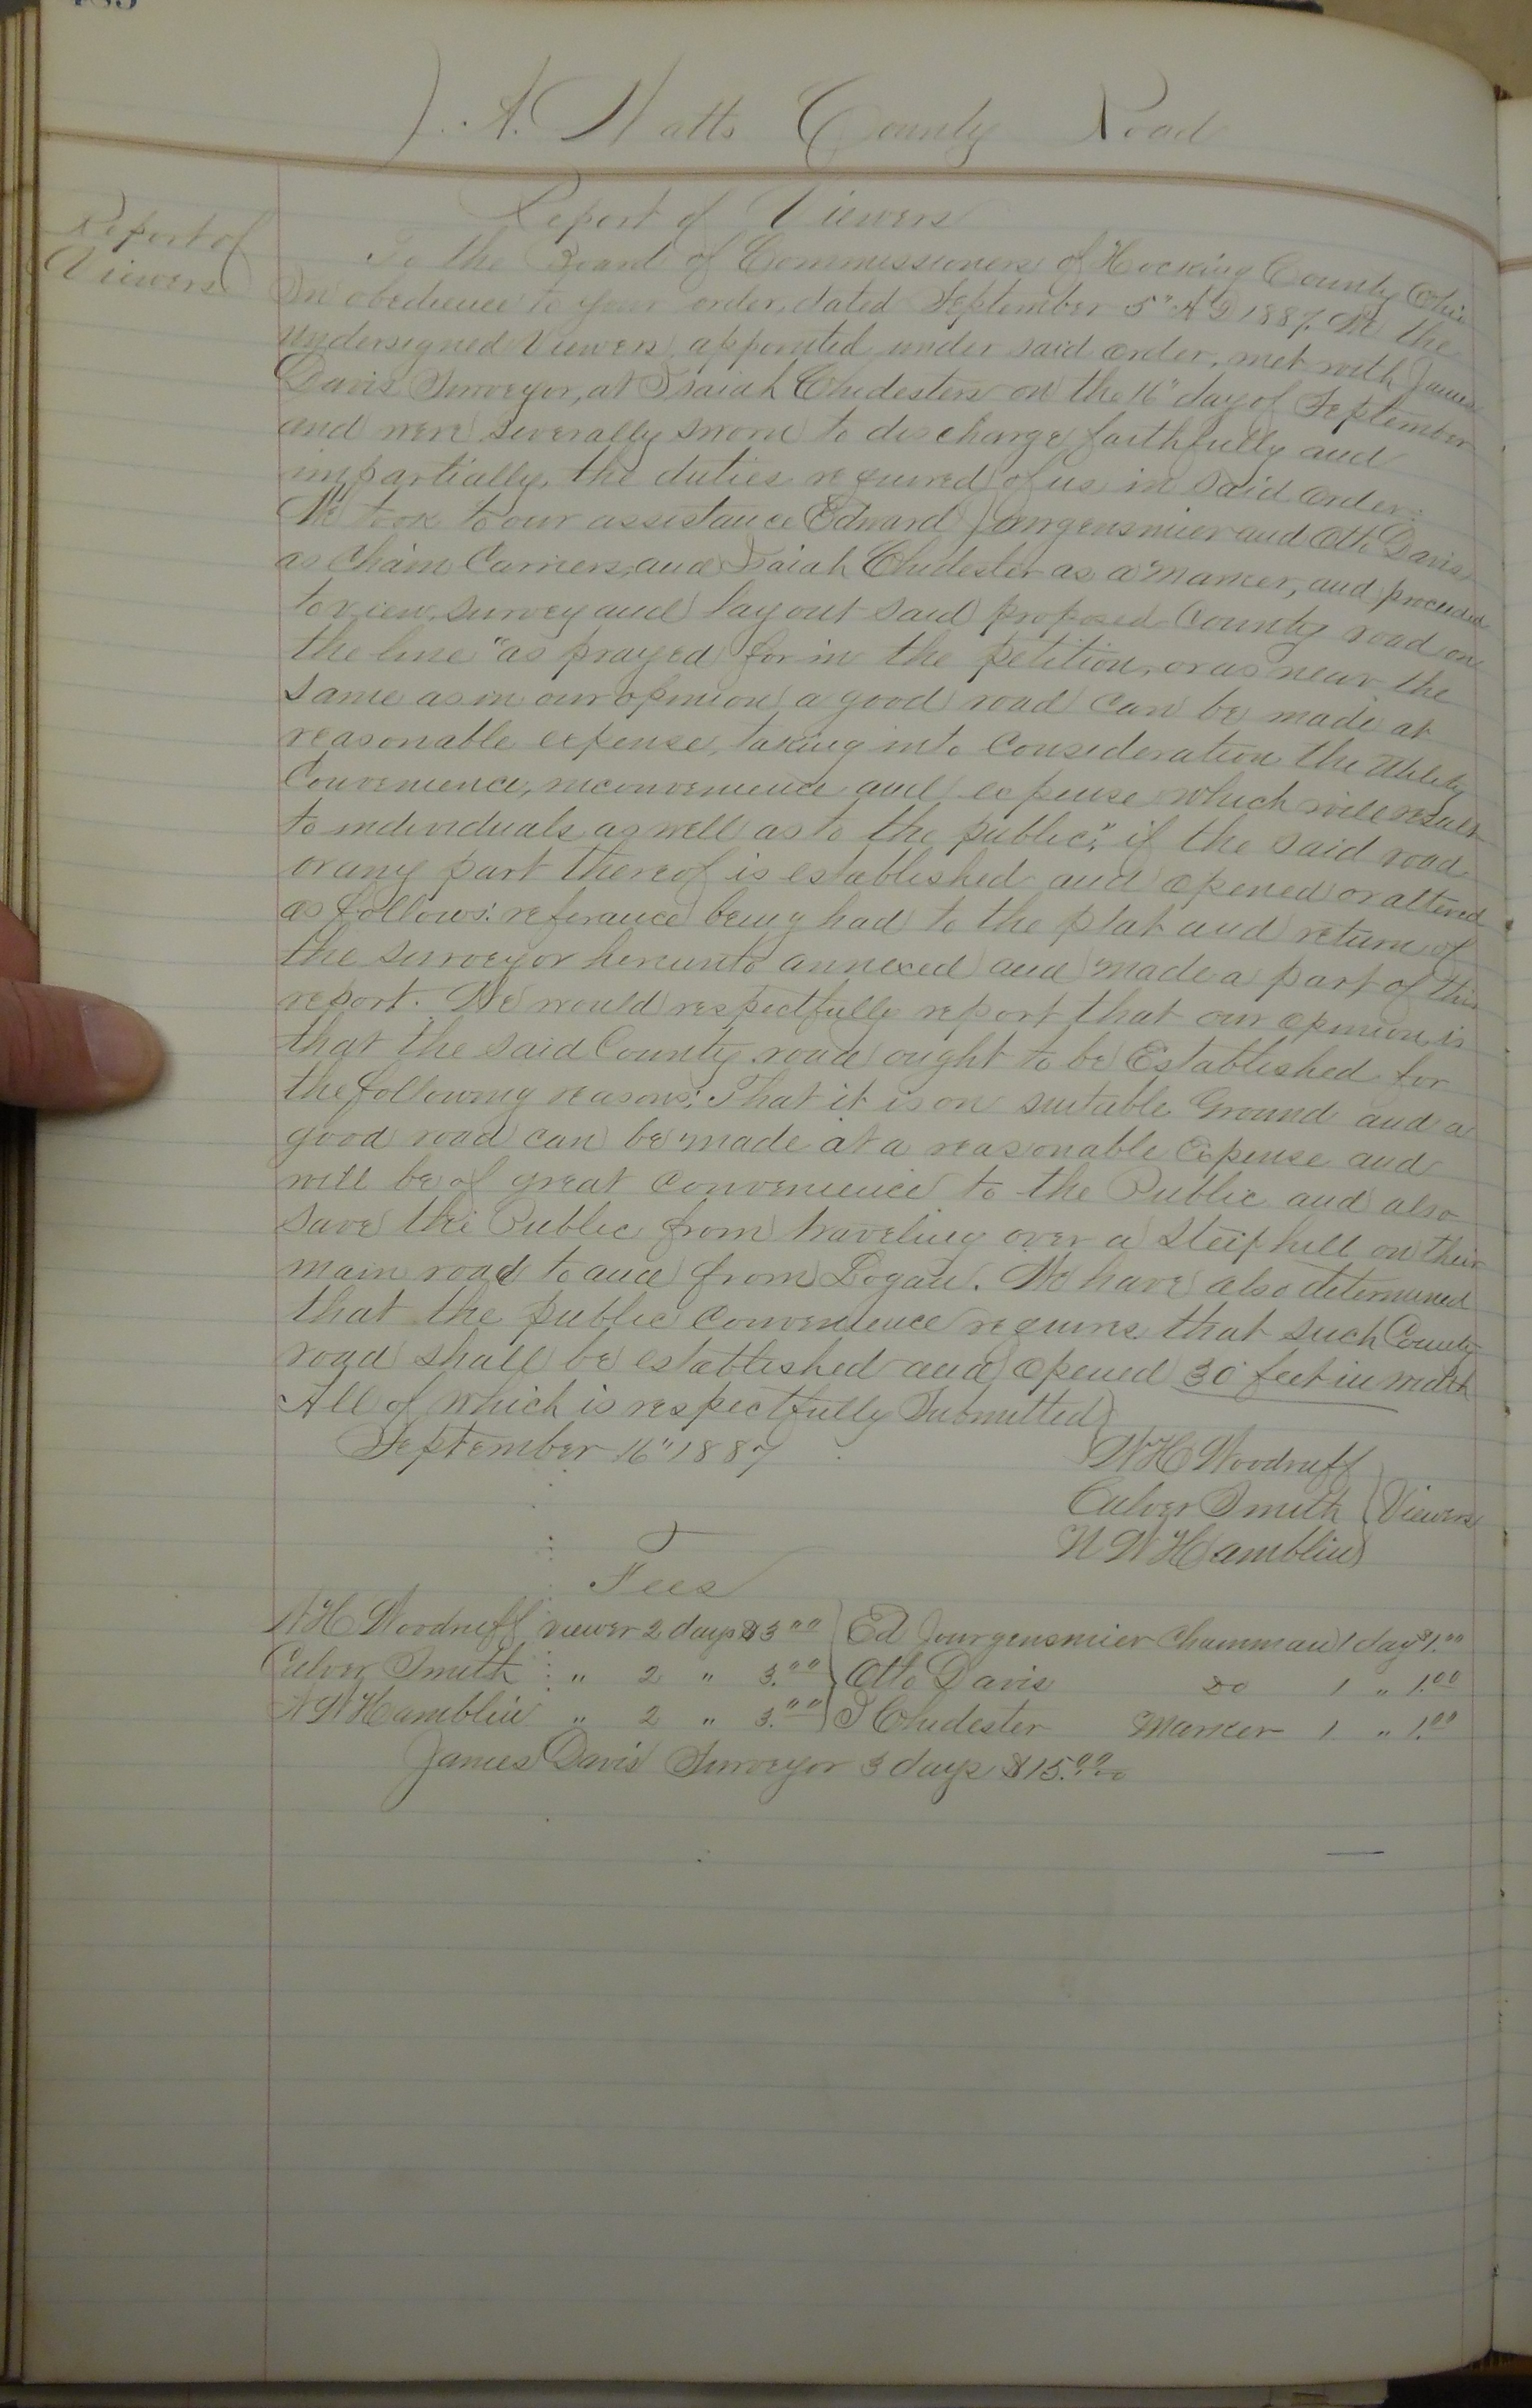 J. A. Watts County Road
Report of Viewers
Report of
Viewers
To the Board of Commissioners of Hocking County Ohio
In obedience to your order, dated September 5" A D 1887. We the
undersigned Viewers appointed under said order, met with James
Davis Surveyor, at Isaiah Chidesters on the 16" day of September
and were severally sworn to discharge faithfully and
impartially, the duties required of us in said order.
We took to our assistance Edward Jourgensmier and Otto Davis
as Chain Carriers, and Isaiah Chidester as a marker, and proceeded
to view, survey and lay out said proposed County road on
the line "as prayed for in the petition, or as near the
same as in our opinion a good road can be made at
reasonable expense, taking into Consideration the Utility
Convenience, inconvenience and expense which will result
to individuals as well as to the public", if the said road
or any part thereof is established and opened or altered
as follows: referance being had to the plat and return of
the surveyor hereunto annexed and made a part of this
report. We would respectfully report that our opinion is
that the said County road ought to be Established for
the following reasons: That it is on suitable Ground and a
good road can be made at a reasonable Expense and
will be of great Convenience to the Public and also
save the Public from traveling over a steep hill on their
main road to and from Logan. We have also determined
that the public Convenience requires that such County
road shall be established and opened 30 feet in width
All of which is respectfully Submitted
September 16" 1887
W H Woodruff
Culver Smith } Viewers
N W Hamblin
Fees
W H Woodruff viewer 2 days $3.00 Ed Jourgensmier Chainman 1 day $1.00
Culver Smith " 2 " 3.00 Otto Davis do 1 " 1.00
N W Hamblin " 2 " 3.00 I Chidester Marker 1 " 1.00
James Davis Surveyor 3 days $15.00